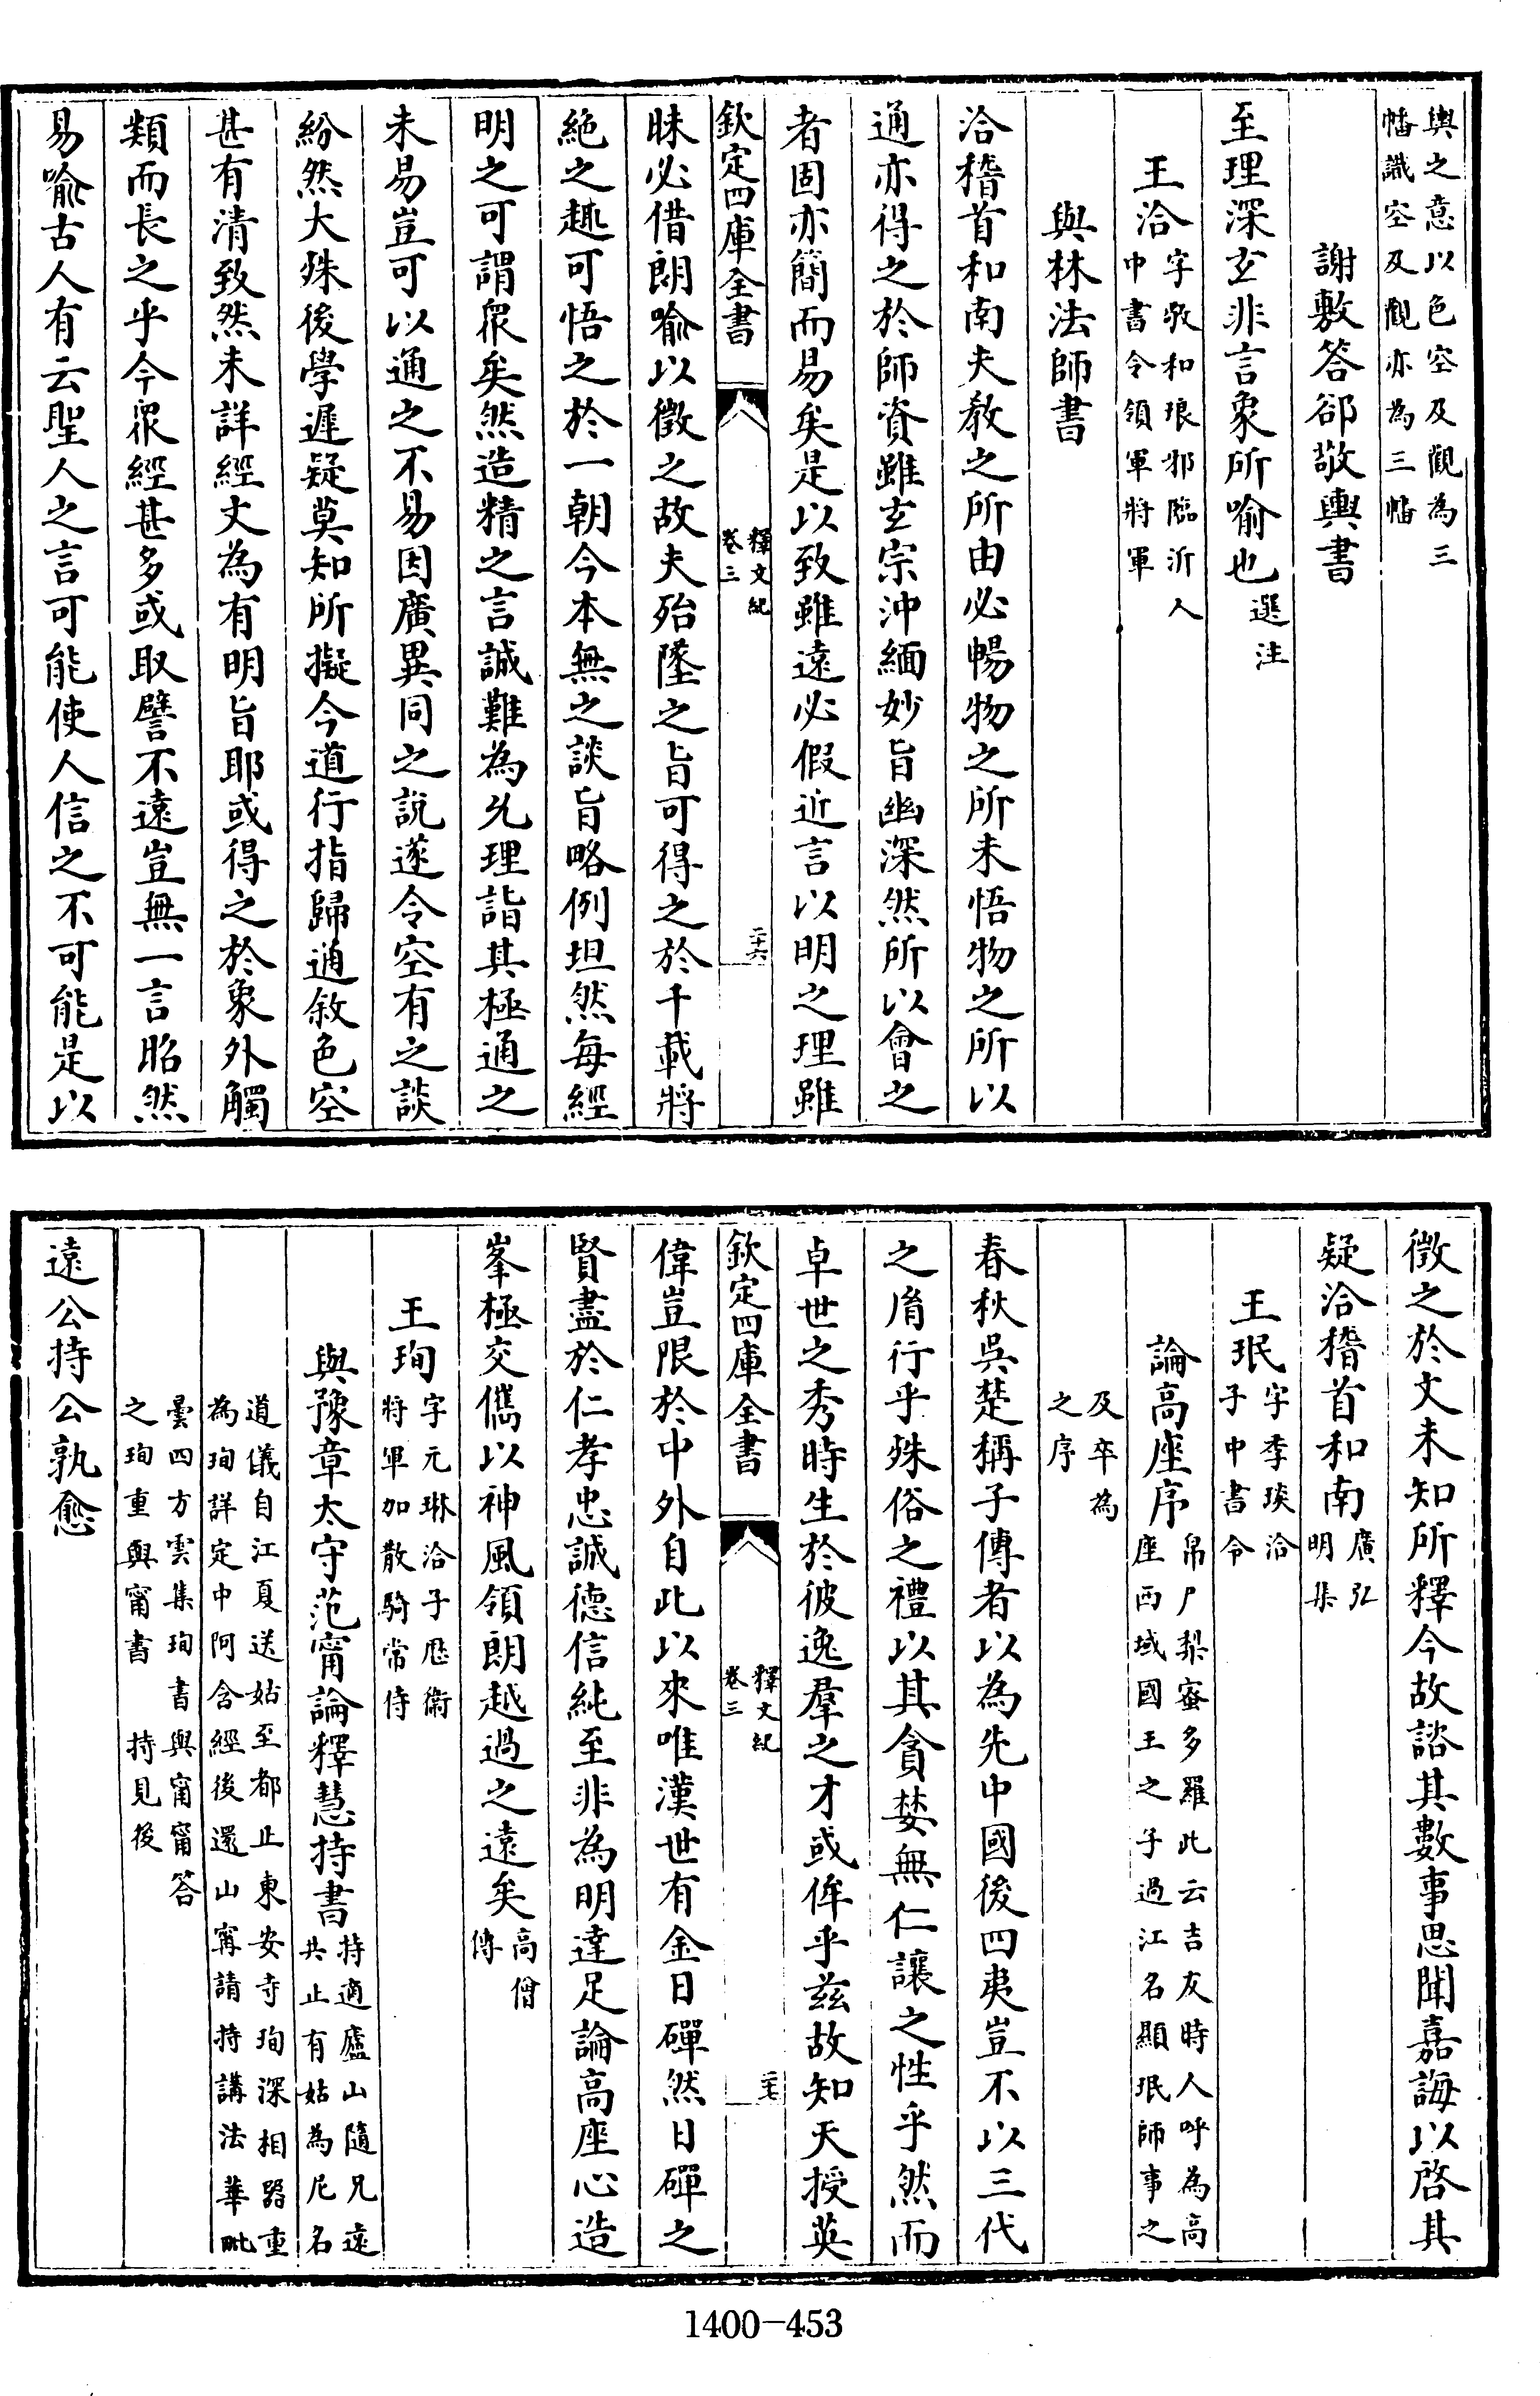 輿之意以色空及觀為三
幡識空及觀亦為三幡
謝敷答郤敬輿書
至理深玄非言象所喻也選注
王洽字敬和琅邪臨沂人
中書令領軍將軍
與林法師書
洽稽首和南夫教之所由必暢物之所未悟物之所以
通亦得之於師資雖玄宗沖緬妙旨幽深然所以會之
者固亦簡而易矣是以致雖遠必假近言以明之理雖
欽定四庫全書
釋文紀
卷三
二十六
昧必借朗喻以徵之故夫殆墜之旨可得之於千載將
絶之趣可悟之於一朝今本無之談旨略例坦然每經
明之可謂衆矣然造精之言誠難為允理詣其極通之
未易豈可以通之不易因廣異同之說遂令空有之談
紛然大殊後學遲疑莫知所擬今道行指歸通敘色空
甚有清致然未詳經文為有明旨耶或得之於象外觸
類而長之乎今衆經甚多或取譬不遠豈無一言昭然
易喻古人有云聖人之言可能使人信之不可能是以
徵之於文未知所釋今故諮其數事思聞嘉誨以啓其
疑洽稽首和南廣弘
明集
王珉字季琰洽
子中書令
論高座序帛尸梨蜜多羅此云吉友時人呼為高
座西域國王之子過江名顯珉師事之
及卒為
之序
春秋吳楚稱子傳者以為先中國後四夷豈不以三代
之胤行乎殊俗之禮以其貪婪無仁讓之性乎然而
卓世之秀時生於彼逸羣之才或侔乎茲故知天授英
欽定四庫全書
釋文紀
卷三
二十七
偉豈限於中外自此以來唯漢世有金日磾然日磾之
賢盡於仁孝忠誠德信純至非為明達足論高座心造
峯極交儁以神風領朗越過之遠矣高僧
傳
王珣字元琳洽子厯衛
將軍加散騎常侍
與豫章太守范甯論釋慧持書持適廬山隨兄遠
共止有姑為尼名
道儀自江夏送姑至都止東安寺珣深相器重
為珣詳定中阿含經後還山甯請持講法華毗
曇四方雲集珣書與甯甯答
之珣重與甯書 持見後
遠公持公孰愈
1400-453